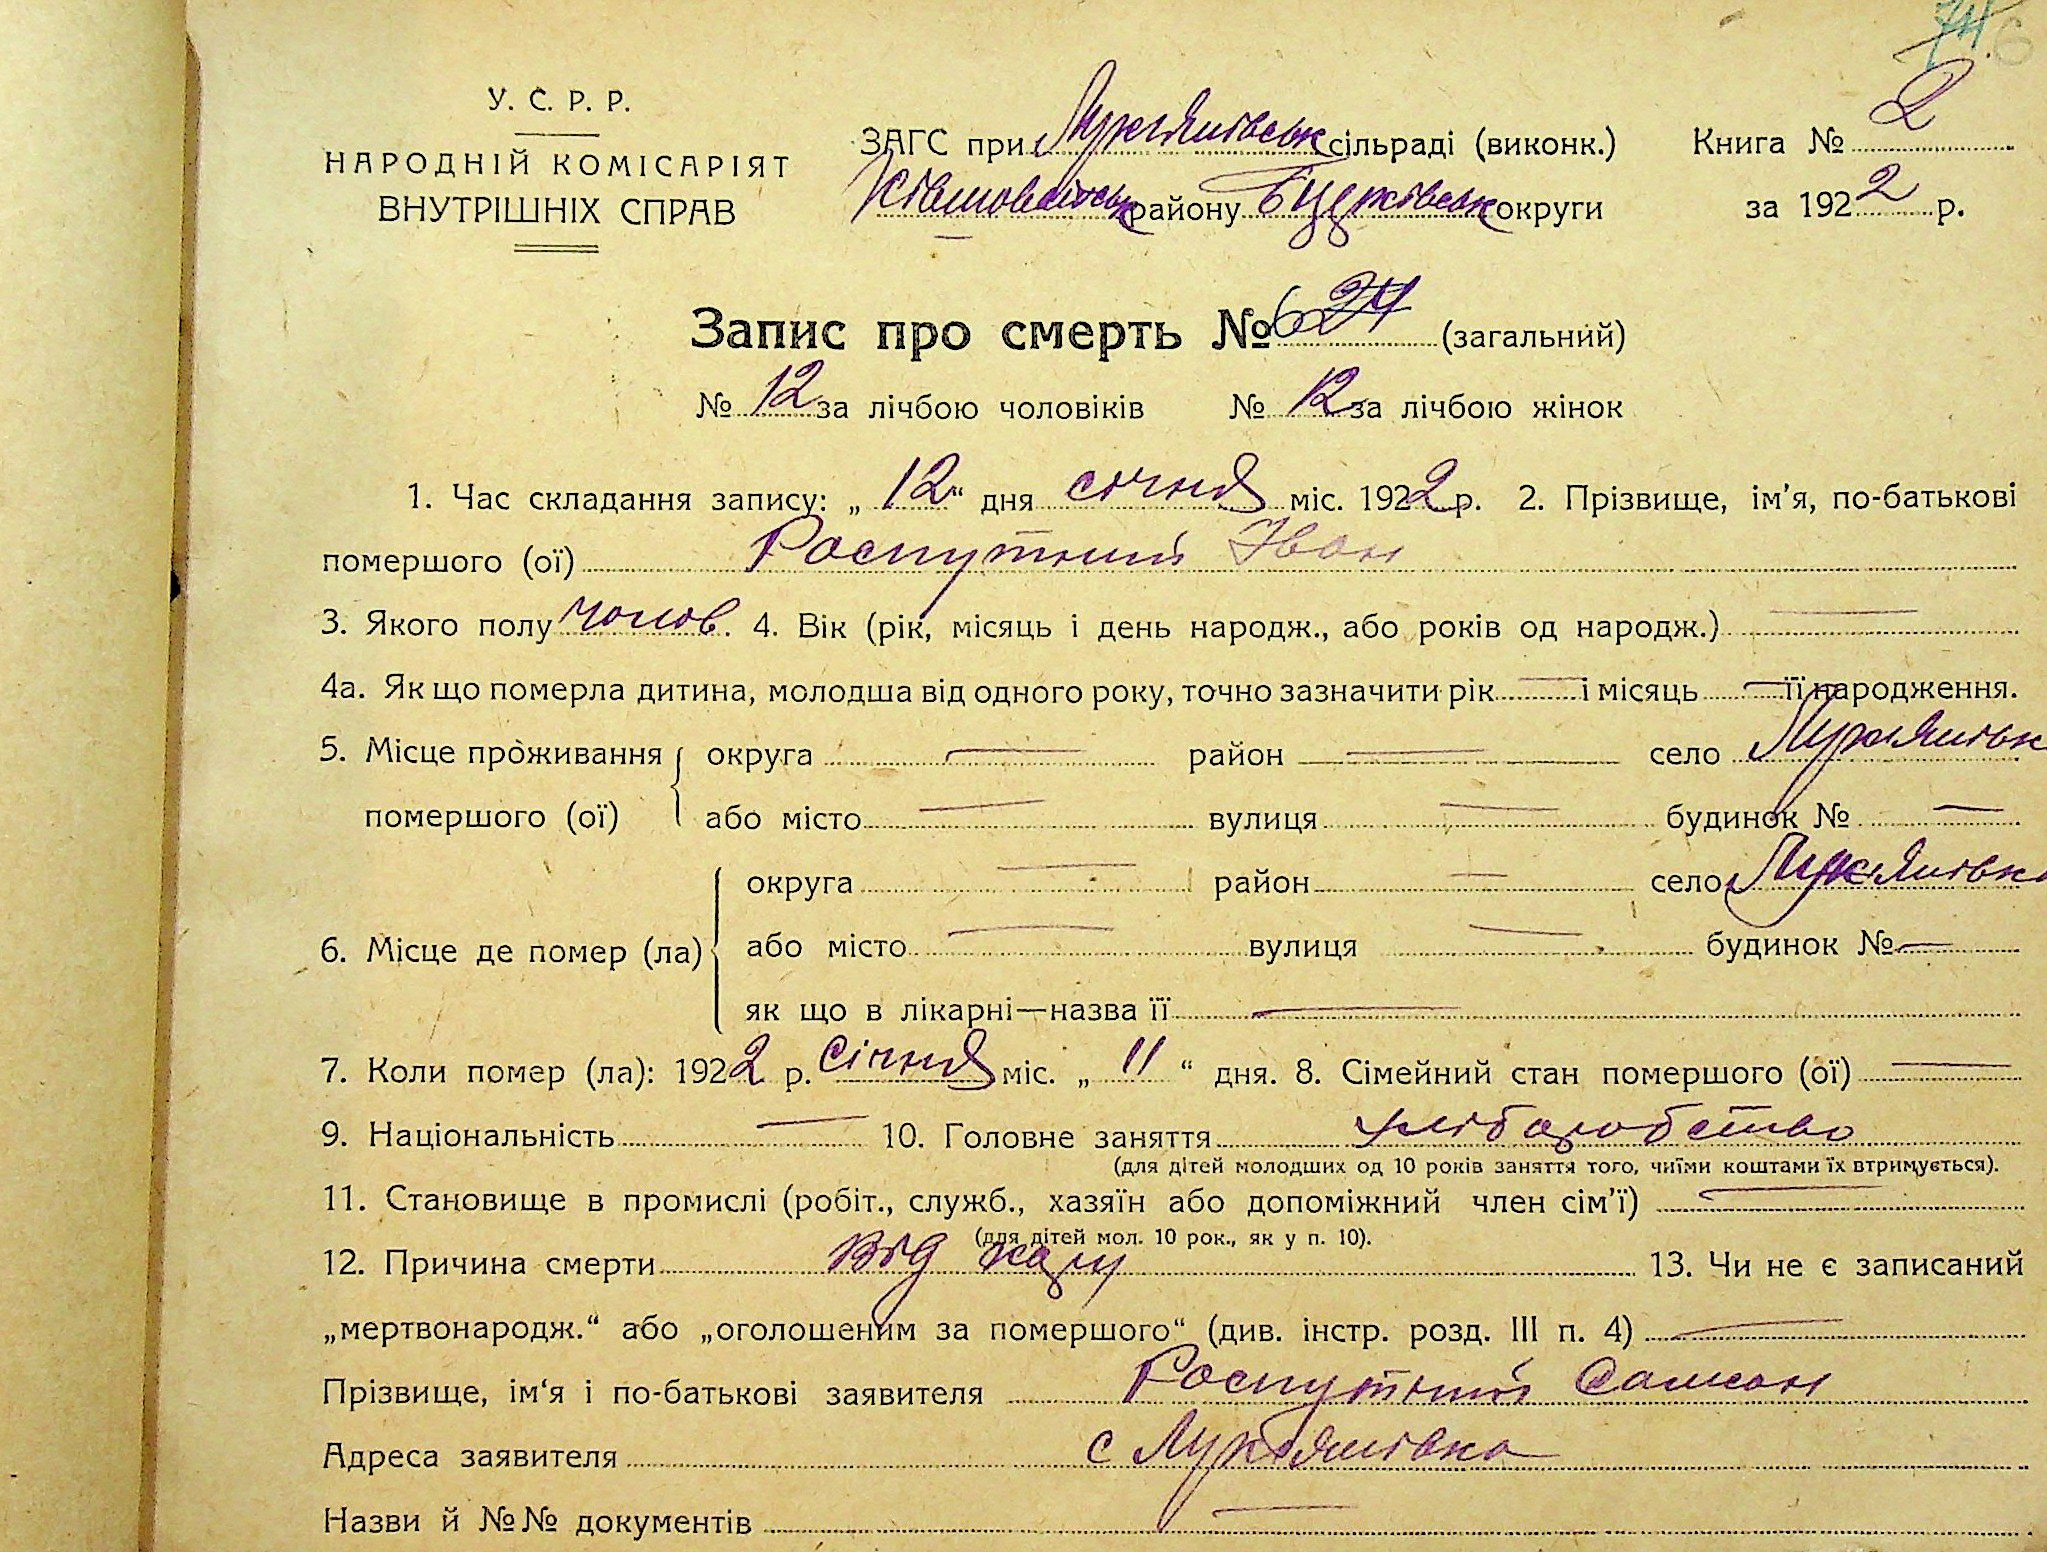 74 6
У. С. Р. Р.
НАРОДНІЙ КОМІСАРІЯТ
ВНУТРІШНІХ СПРАВ
ЗАГС при Лукянівськ сільраді (виконк.)
району округи
Книга № 2
за 1922 р.
Запис про смерть № 6 24 (загальний)
№ 12 за лічбою чоловіків № 12 за лічбою жінок
1. Час складання запису: „12“ дня січня міс. 1922 р. 2. Прізвище, ім’я, по-батькові
помершого (ої) Роспутний Іван
3. Якого полу чолов. 4. Вік (рік, місяць і день народж., або років од народж.) —
4а. Як що померла дитина, молодша від одного року, точно зазначити рік — і місяць — її народження.
5. Місце проживання помершого (ої) округа — район — село Лукянівка
або місто — вулиця — будинок № —
6. Місце де помер (ла) округа — район — село Лукянівка
або місто — вулиця — будинок № —
як що в лікарні—назва її —
7. Коли помер (ла): 1922 р. Січня міс. „11“ дня. 8. Сімейний стан помершого (ої) —
9. Національність — 10. Головне заняття хліборобство
(для дітей молодших од 10 років заняття того, чиїми коштами їх втримується).
11. Становище в промислі (робіт., служб., хазяїн або допоміжний член сім’ї) —
(для дітей мол. 10 рок., як у п. 10).
12. Причина смерти Від 13. Чи не є записаний
„мертвонародж.“ або „оголошеним за помершого“ (див. інстр. розд. III п. 4) —
Прізвище, ім‘я і по-батькові заявителя Роспутний Самсон
Адреса заявителя с Лукянівка
Назви й №№ документів —